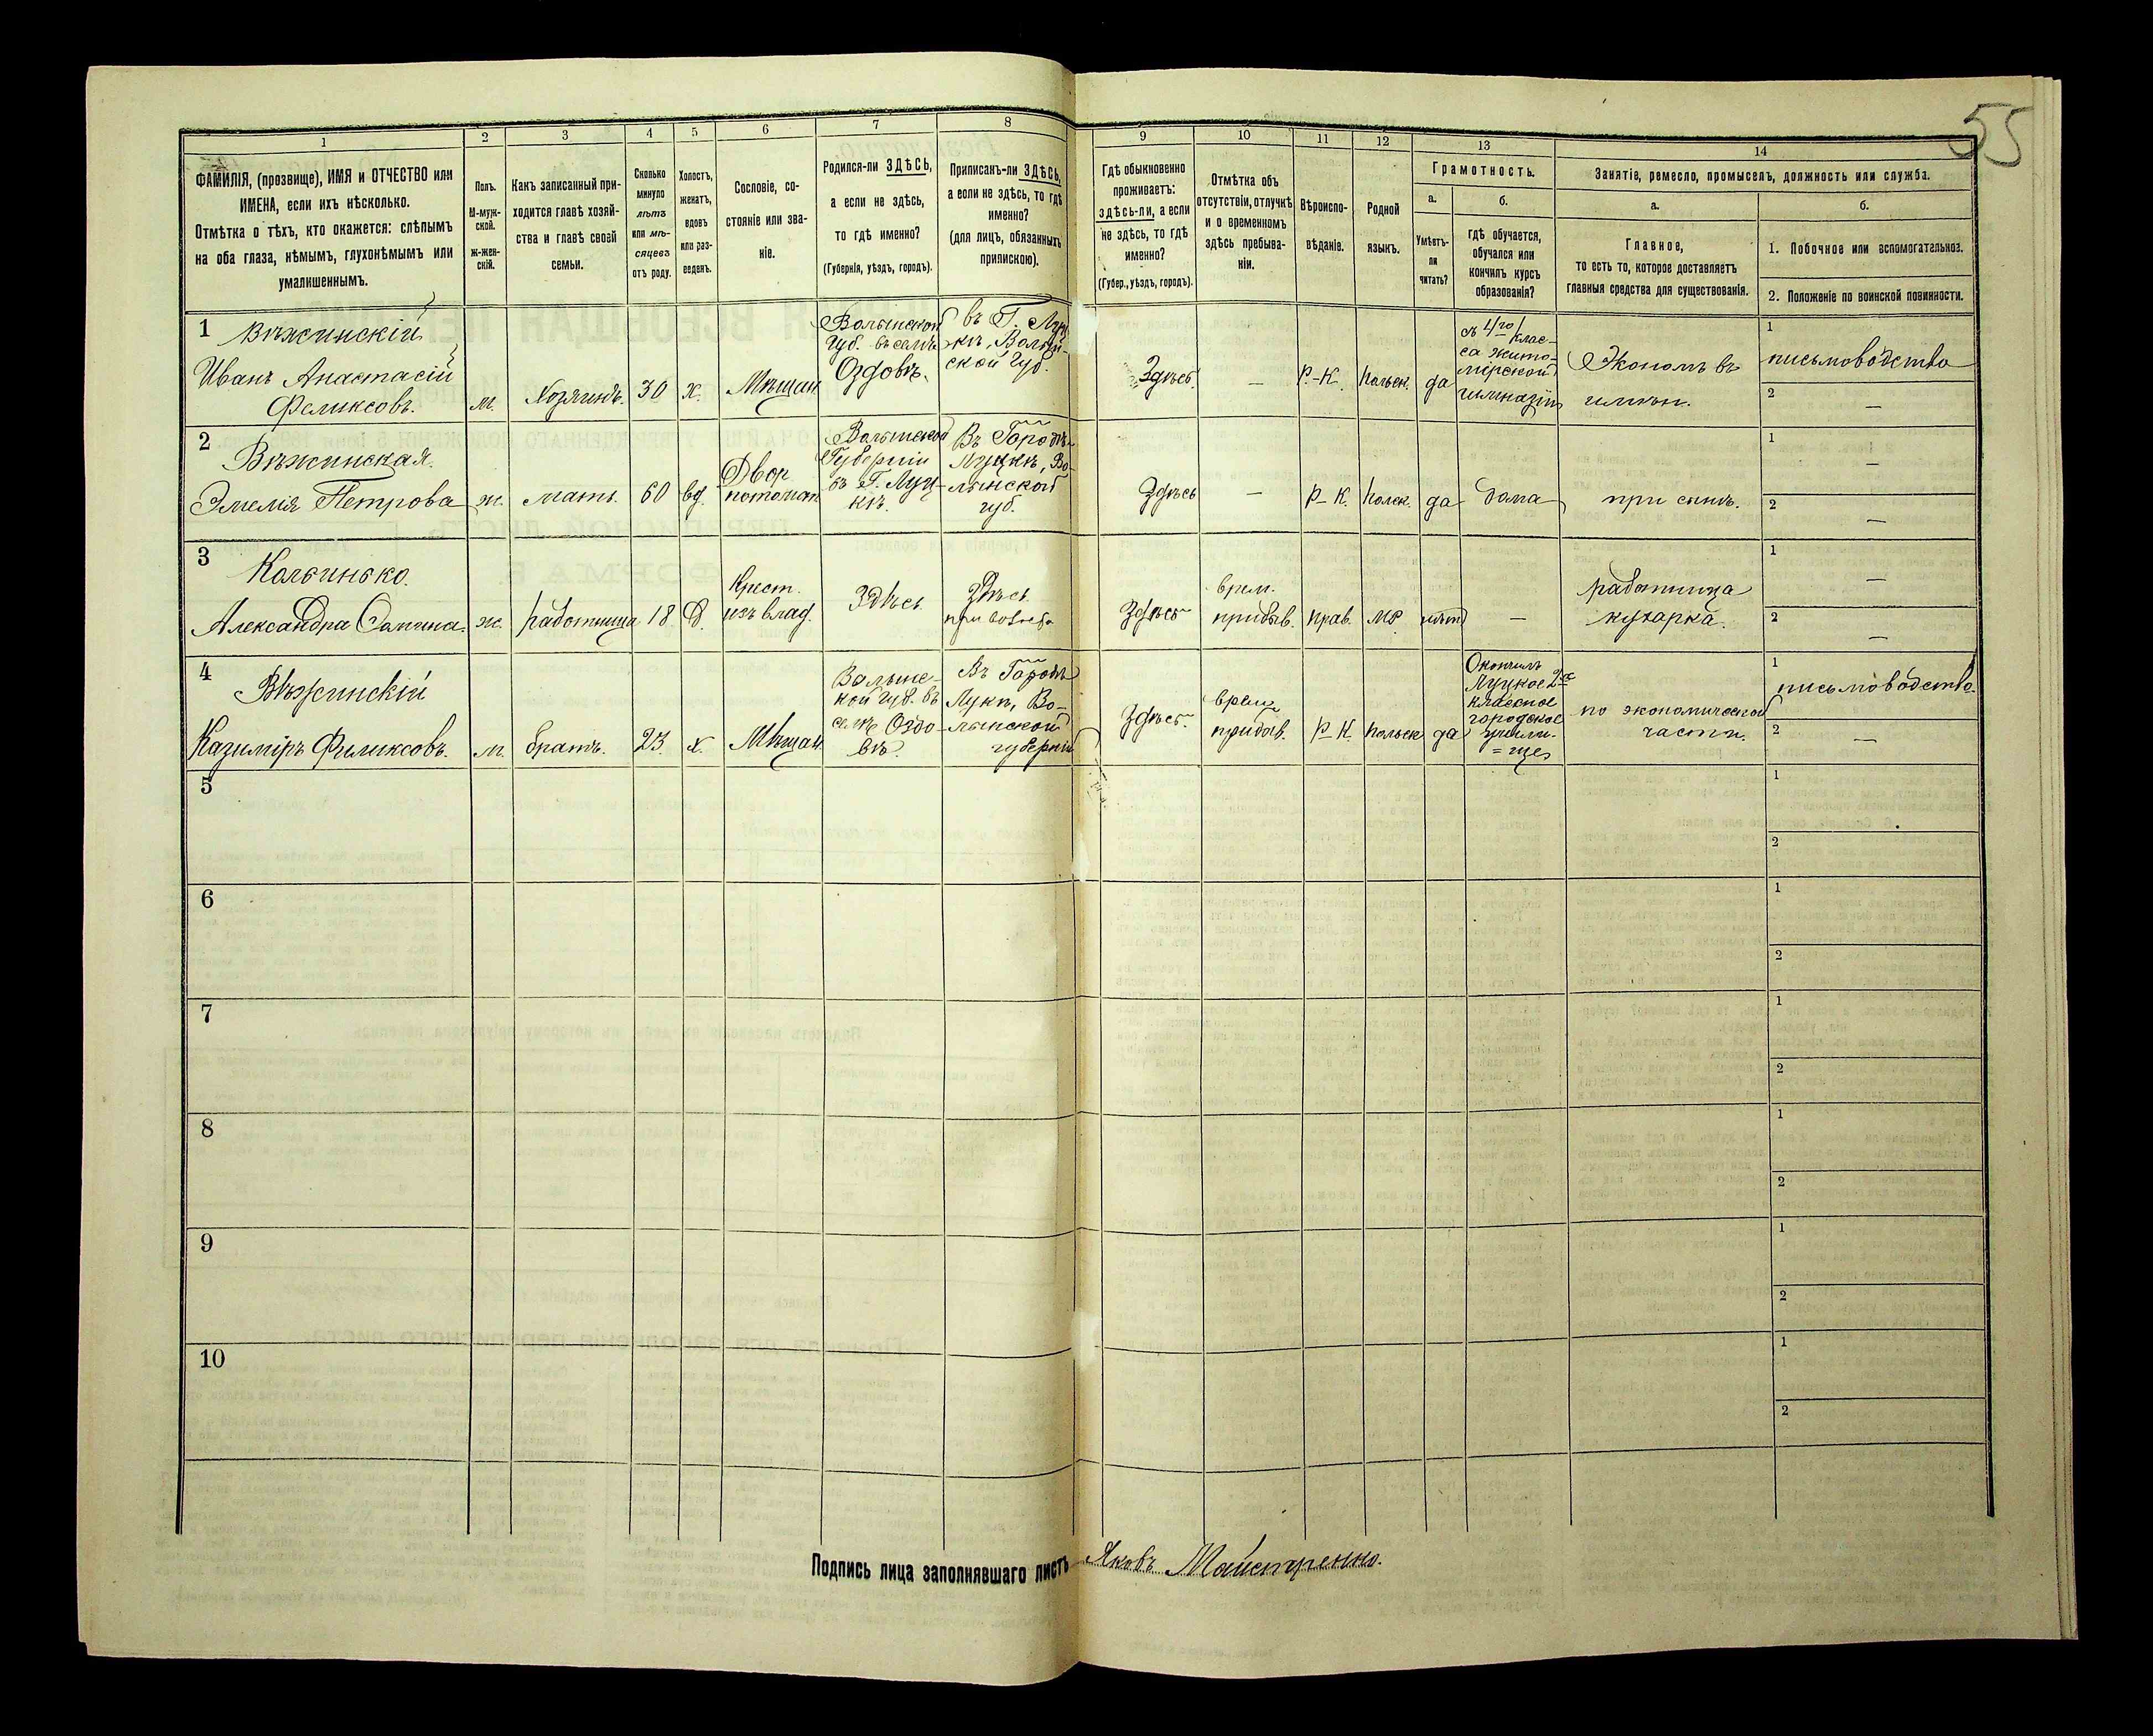 55
1
2
3
4
5
6
7
8
9
10
11
12
13
14
ФАМИЛІЯ, (прозвище), ИМЯ и ОТЧЕСТВО или
ИМЕНА, если ихъ нѣсколько.
Отмѣтка о тѣхъ, кто окажется: слѣпымъ
на оба глаза, нѣмымъ, глухонѣмымъ или
умалишеннымъ.
Полъ.
М-муж-
ской.
ж-жен-
скій.
Какъ записанный при-
ходится главѣ хозяй-
ства и главѣ своей
семьи.
Сколько
минуло
лѣтъ
или мѣ-
сяцевъ
отъ роду.
Холостъ,
женатъ,
вдовъ
или раз-
веденъ.
Сословіе, со-
стояніе или зва-
ніе.
Родился-ли ЗДѢСЬ,
а если не здѣсь,
то гдѣ именно?
(Губернія, уѣздъ, городъ).
Приписанъ-ли ЗДѢСЬ,
а если не здѣсь, то гдѣ
именно?
(для лицъ, обязанныхъ
припискою).
Гдѣ обыкновенно
проживаетъ:
здѣсь-ли, а если
не здѣсь, то гдѣ
именно?
(Губер., уѣздъ, городъ).
Отмѣтка объ
отсутствіи, отлучкѣ
и о временномъ
здѣсь пребыва-
ніи.
Вѣроиспо-
вѣданіе.
Родной
языкъ.
Грамотность.
а.
Умѣетъ-
ли
читать?
б.
гдѣ обучается,
обучался или
кончилъ курсъ
образованія?
Занятіе, ремесло, промыселъ, должность или служба.
а.
Главное,
то есть то, которое доставляетъ
главныя средства для существованія.
б.
1. Побочное или вспомогательное.
2. Положеніе по воинской повинности.
1
Вѣжинскій
Иванъ Анастасій
Феликсовъ.
м.
Хозяинъ.
30
х.
Мѣщан.
Волынской
Губ. въ селѣ
Оздовъ.
въ Г. Луц-
кѣ, Волын-
ской Губ.
Здѣсь.
—
Р.-К.
польск.
да
съ 4го клас-
са Жито-
мірской
гимназіи
Экономъ въ
имѣн.
1
письмоводство
2
—
2
Вѣжинская.
Эмелія Петрова
ж.
мать.
60
вд.
Двор
потомст.
Волынской
Губерніи
въ Г. Луц-
кѣ.
Въ Городѣ
Луцкѣ, Во-
лынской
губ.
Здѣсь
—
Р-К.
полск.
да
дома
при сынѣ.
1
—
2
—
3
Кольинько.
Александра
ж.
работница
18
Д.
Крест.
изъ влад.
Здѣсь
Здѣсь
Здѣсь
врем.
прибыв.
прав.
мр
нѣтъ
—
работница
кухарка.
1
—
2
—
4
Вѣжинскій
Казиміръ Феликсовъ.
м.
братъ.
23.
х.
Мѣщан.
Волынс-
кой губ. въ
селѣ Оздо-
вѣ.
Въ Городѣ
Луцкѣ, Во-
лынской
губерніи
Здѣсь
врем.
прибыв.
Р-К.
польск
да
Окончилъ
Луцкое 2хъ
классное
городское
учили-
=ще
по экономической
части.
1
письмоводство.
2
—
5
1
2
6
1
2
7
1
2
8
1
2
9
1
2
10
1
2
Подпись лица заполнявшаго листъ Яковъ Майстренко.